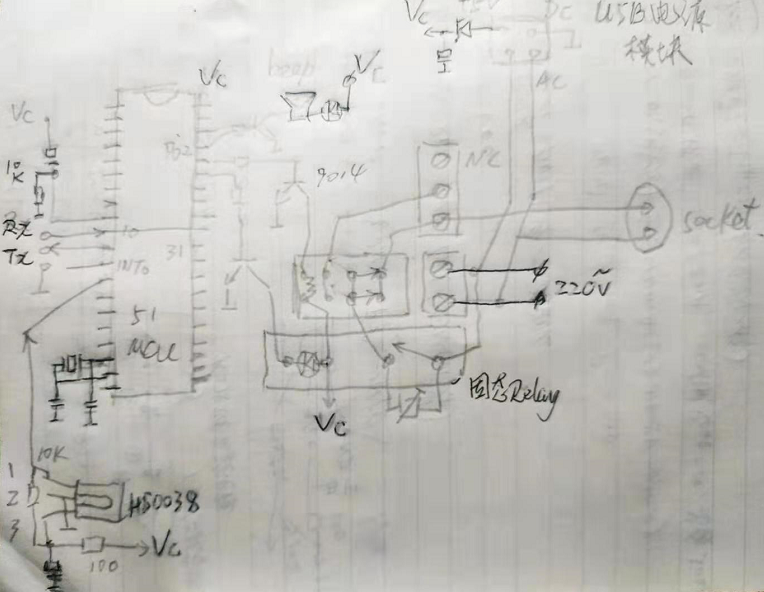 Vc
DC
USB电源
模块
AC
beep
Vc
Vc
Vc
10
K
P32
9014
NC
Rx
Tx
10
31
INT0
socket
220V
~
51
MCU
固态Relay
Vc
10K
1
2
3
HS0038
100
Vc